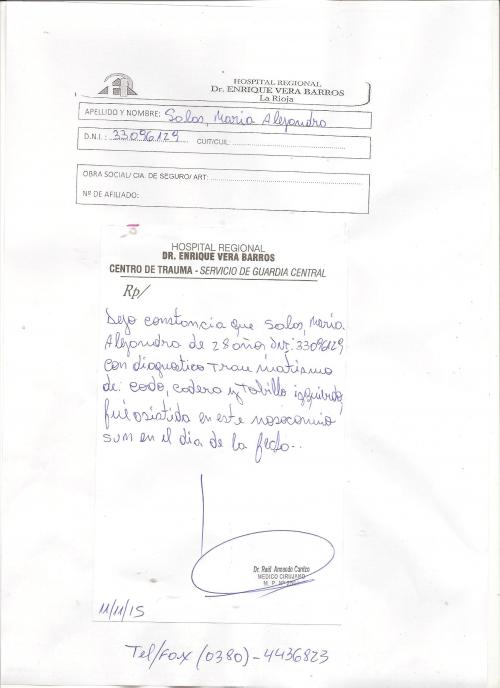 HOSPITAL REGIONAL
Dr. ENRIQUE VERA BARROS
La Rioja
APELLIDO Y NOMBRE: Salas, Maria Alejandra
D.N.I.: 33096129 CUIT/CUIL:
OBRA SOCIAL/ CIA. DE SEGURO/ ART:
Nº DE AFILIADO:
HOSPITAL REGIONAL
DR. ENRIQUE VERA BARROS
CENTRO DE TRAUMA - SERVICIO DE GUARDIA CENTRAL
Rp/
Dejo constancia que Salas, Maria
Alejandra de 28 años DNI: 33096129
con diagnostico traumatismo
de codo, cadera y tobillo izquierdo,
fue asistida en este nosocomio
en el dia de la fecha..
Dr. Raúl Armando Carrizo
MEDICO CIRUJANO
M. P. Nº
11/11/15
Tel/Fax (0380)-4436823